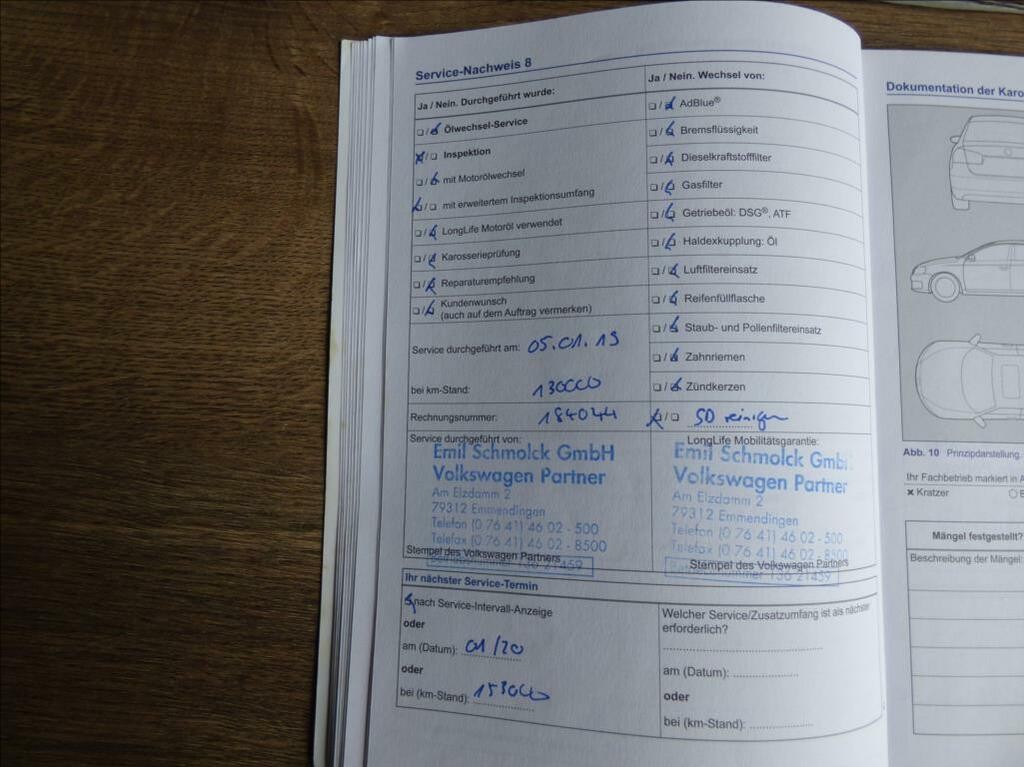 Service-Nachweis 8
Ja / Nein. Durchgeführt wurde:
Ölwechsel-Service
Inspektion
mit Motorölwechsel
mit erweitertem Inspektionsumfang
LongLife Motoröl verwendet
Karosserieprüfung
Reparaturempfehlung
Kundenwunsch
(auch auf dem Auftrag vermerken)
Service durchgeführt am: 05.01.19
bei km-Stand: 130000
Rechnungsnummer: 184044
Service durchgeführt von:
Emil Schmolck GmbH
Volkswagen Partner
Am Elzdamm 2
79312 Emmendingen
Telefon (0 76 41) 46 02 - 500
Telefax (0 76 41) 46 02 - 8500
Stempel des Volkswagen Partners
Betriebsnummer 136 21459
Ja / Nein. Wechsel von:
AdBlue®
Bremsflüssigkeit
Dieselkraftstofffilter
Gasfilter
Getriebeöl: DSG®, ATF
Haldexkupplung: Öl
Luftfiltereinsatz
Reifenfüllflasche
Staub- und Pollenfiltereinsatz
Zahnriemen
Zündkerzen
SD reinigen
LongLife Mobilitätsgarantie:
Emil Schmolck GmbH
Volkswagen Partner
Am Elzdamm 2
79312 Emmendingen
Telefon (0 76 41) 46 02 - 500
Telefax (0 76 41) 46 02 - 8500
Stempel des Volkswagen Partners
Betriebsnummer 136 21459
Ihr nächster Service-Termin
nach Service-Intervall-Anzeige
oder
am (Datum): 01/20
oder
bei (km-Stand): 153000
Welcher Service/Zusatzumfang ist als nächster
erforderlich?
am (Datum):
oder
bei (km-Stand):
Dokumentation der Karo
Abb. 10 Prinzipdarstellung.
Ihr Fachbetrieb markiert in A
Kratzer
Mängel festgestellt?
Beschreibung der Mängel: